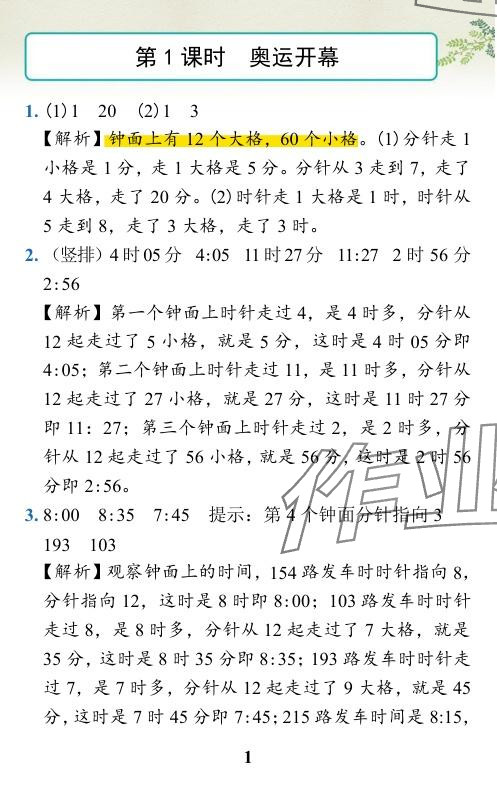 第1课时 奥运开幕
1. (1)1 20 (2)1 3
【解析】钟面上有12个大格，60个小格。(1)分针走1
小格是1分，走1大格是5分。分针从3走到7，走了
4大格，走了20分。(2)时针走1大格是1时，时针从
5走到8，走了3大格，走了3时。
2. （竖排）4时05分 4:05 11时27分 11:27 2时56分
2:56
【解析】第一个钟面上时针走过4，是4时多，分针从
12起走过了5小格，就是5分，这时是4时05分即
4:05；第二个钟面上时针走过11，是11时多，分针从
12起走过了27小格，就是27分，这时是11时27分
即11：27；第三个钟面上时针走过2，是2时多，分
针从12起走过了56小格，就是56分，这时是2时56
分即2:56。
3. 8:00 8:35 7:45 提示：第4个钟面分针指向3
193 103
【解析】观察钟面上的时间，154路发车时时针指向8，
分针指向12，这时是8时即8:00；103路发车时时针
走过8，是8时多，分针从12起走过了7大格，就是
35分，这时是8时35分即8:35；193路发车时时针走
过7，是7时多，分针从12起走过了9大格，就是45
分，这时是7时45分即7:45；215路发车时间是8:15，
1
作业